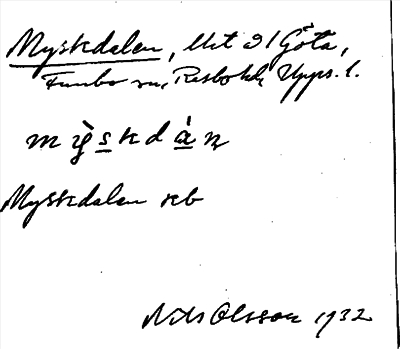 Myskdalen, lht u/Göta,
Funbo sn, Rasbo hd, Upps. l.
mỳskdàn
Myskdalen skb
Nils Olsson 1932